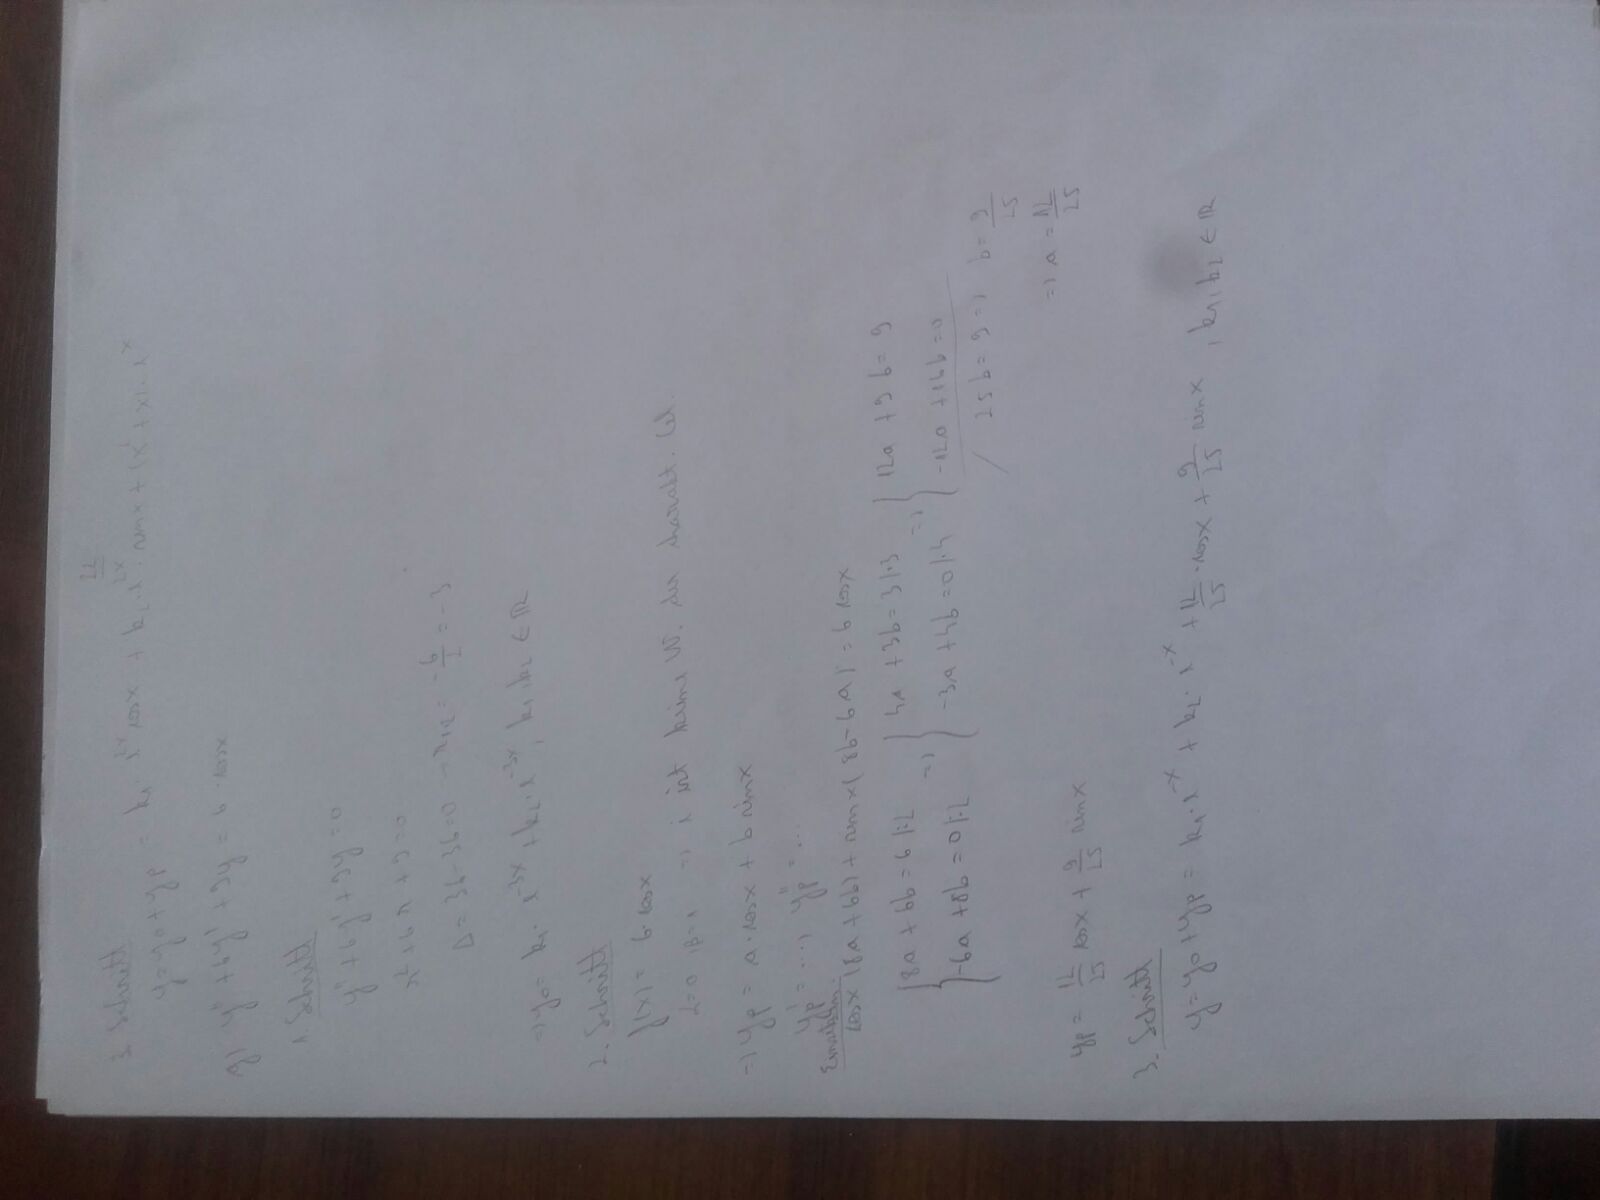 22
3. Schritt
y = y₀ + yₚ = k₁ · e^{2x} cosx + k₂ · e^{2x} · sinx + (x² + x) · e^x
g) y'' + 6y' + 9y = 6 · cosx
1. Schritt
y'' + 6y' + 9y = 0
r² + 6r + 9 = 0
Δ = 36 - 36 = 0 → r₁,₂ = -6/2 = -3
=> y₀ = k₁ · e^{-3x} + k₂ · e^{-3x}, k₁, k₂ ∈ ℝ
2. Schritt
f(x) = 6 · cosx
α = 0, β = 1 => i ist keine W. der charakt. Gl.
=> yₚ = a · cosx + b sinx
yₚ' = ..., yₚ'' = ...
Einsetzen:
cosx (8a + 6b) + sinx (8b - 6a) = 6 cosx
{ 8a + 6b = 6 |:2 => { 4a + 3b = 3 |·3 => { 12a + 9b = 9
-6a + 8b = 0 |:2 -3a + 4b = 0 |·4 -12a + 16b = 0
/ 25b = 9 => b = 9/25
=> a = 12/25
yₚ = 12/25 cosx + 9/25 sinx
3. Schritt
y = y₀ + yₚ = k₁ · e^{-x} + k₂ · e^{-x} + 12/25 · cosx + 9/25 sinx, k₁, k₂ ∈ ℝ